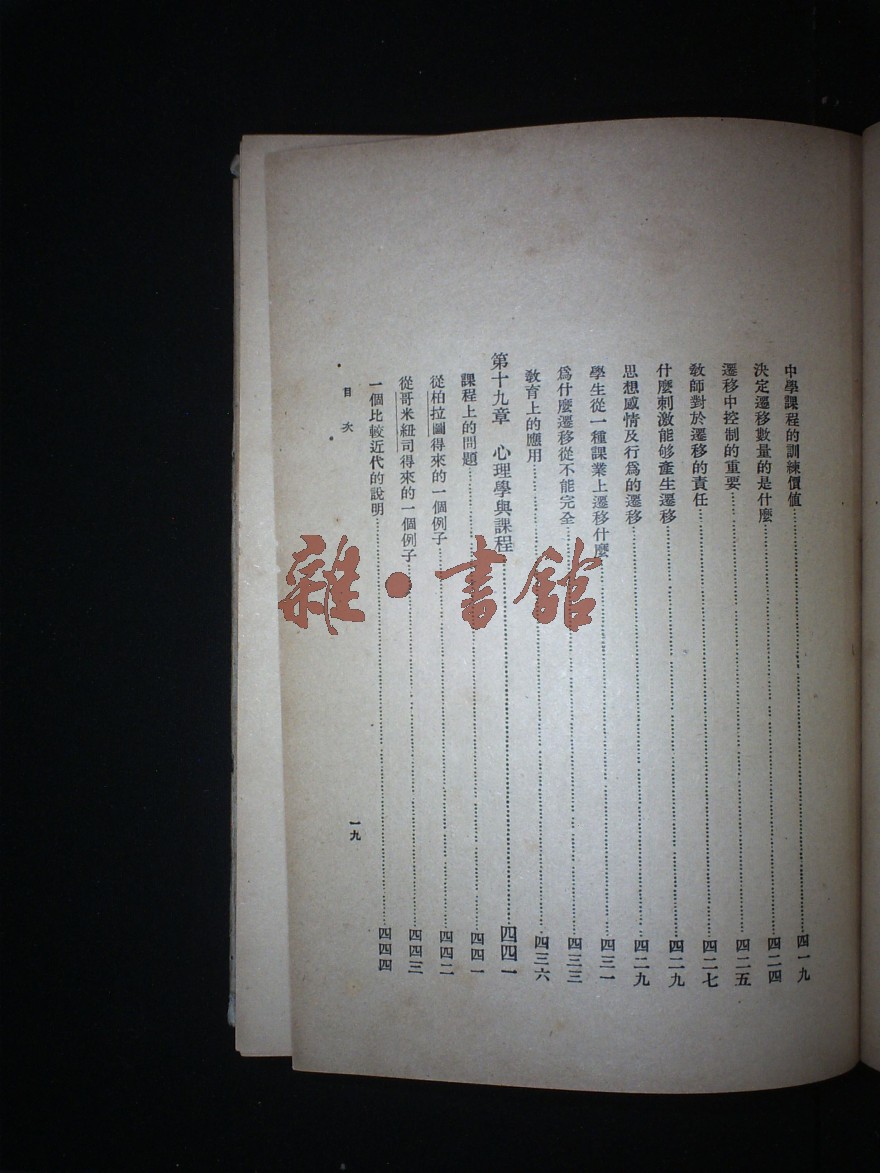 中學課程的訓練價值……四一九
決定遷移數量的是什麼……四二四
遷移中控制的重要……四二五
教師對於遷移的責任……四二七
什麼刺激能够產生遷移……四二九
思想感情及行爲的遷移……四二九
學生從一種課業上遷移什麼……四三一
爲什麼遷移從不能完全……四三三
教育上的應用……四三六
第十九章　心理學與課程……四四一
課程上的問題……四四一
從柏拉圖得來的一個例子……四四二
從哥米紐司得來的一個例子……四四三
一個比較近代的說明……四四四
目次
一九
雜·書館